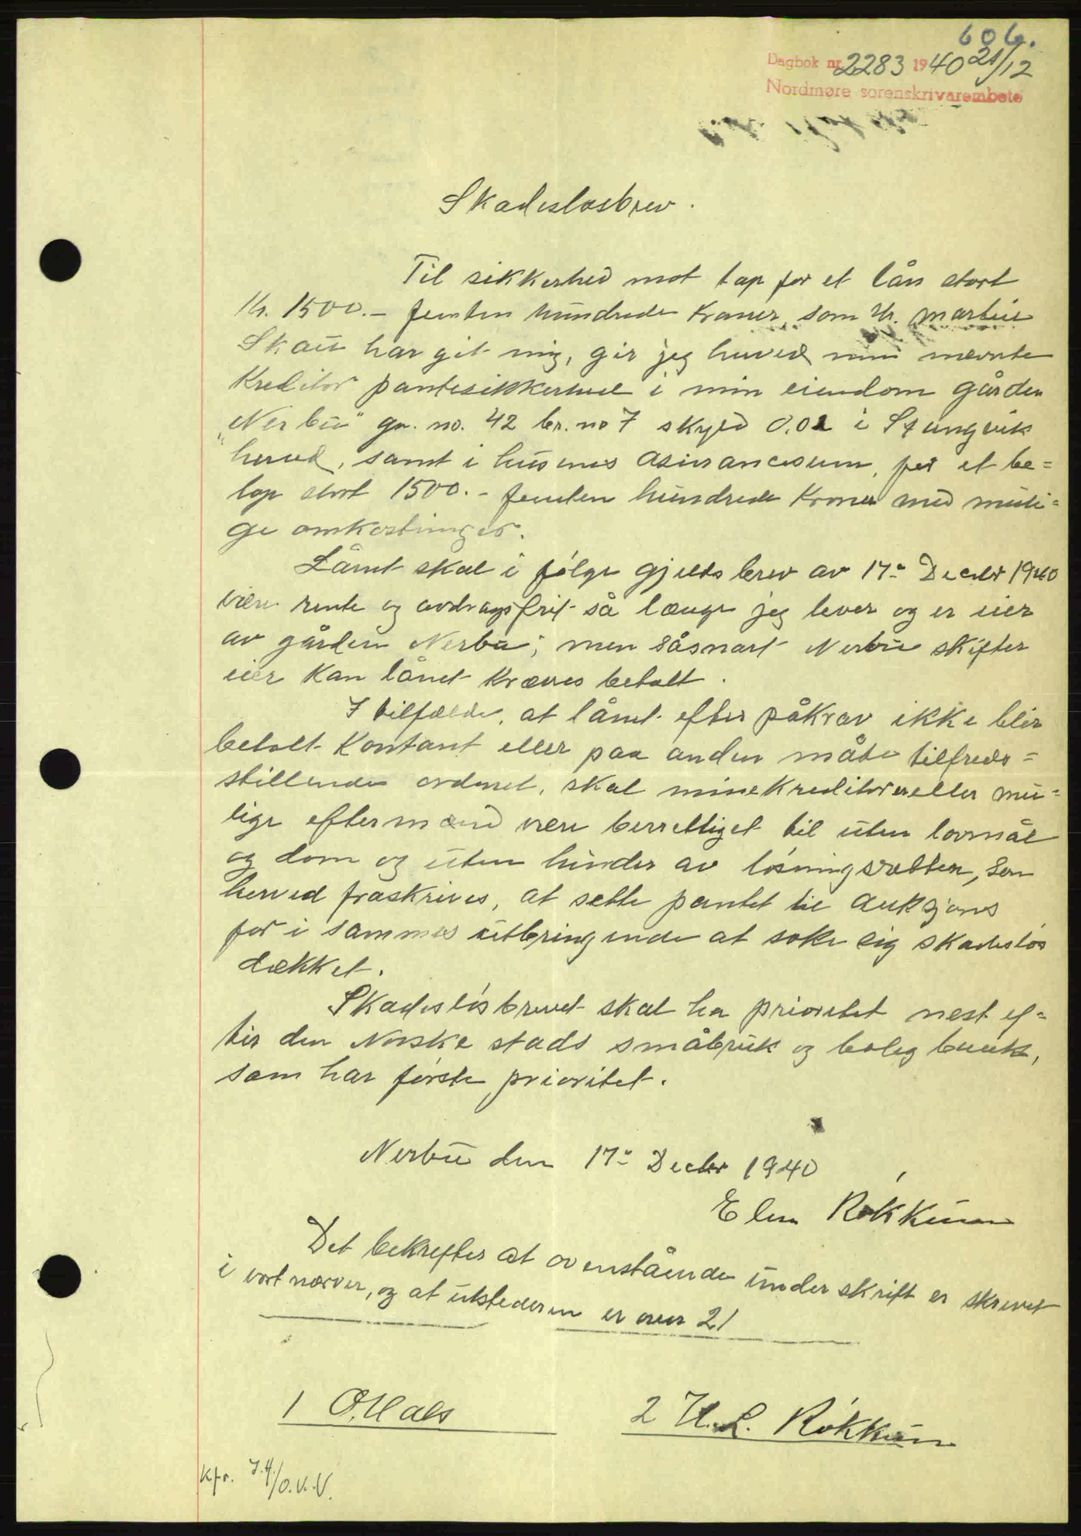 606.
Dagbok nr. 2283 1940 21/12
Nordmøre sorenskrivarembete
Skadesløsbrev.
Til sikkerhed mot tap for et lån stort
Kr. 1500.- femten hundrede kroner, som Hr. Martin
Skau har git mig, gir jeg herved min nævnte
Kreditor pantesikkerhed i min eiendom gården
"Nerbu" gn. no. 42 br. no 7 skyld 0.02 i Stangvik
herred, samt i husenes asurancesum, for et be=
løp stort 1500.- femten hundrede Kroner med muli=
ge omkostninger.
Lånet skal i følge gjeldsbrev av 17de Decbr 1940
være rente og avdragsfrit så længe jeg lever og er eier
av gården Nerbu; men såsnart Nerbu skifter
eier kan lånet kræves betalt.
I tilfælde, at lånet efter påkrav ikke blir
betalt kontant eller paa anden måte tilfreds=
stillende ordnet, skal mine kreditorer eller mu=
lige eftermænd være berettiget til uten lovmål
og dom og uten hinder av løsningsretten, som
herved fraskrives, at sette pantet til auksjons
for i sammes utbringende at søke sig skadesløs
dækket.
Skadesløsbrevet skal ha prioritet nest ef=
ter den Norske stads småbruk og bolig bank,
som har første prioritet.
Nerbu den 17de Decbr 1940
Elen Røkkum
Det bekreftes at ovenstående underskrift er skrevet
i vort nærver, og at utstederen er over 21
1 O. Hals
2 H. L. Røkkum
Kfr. /O.V.V.